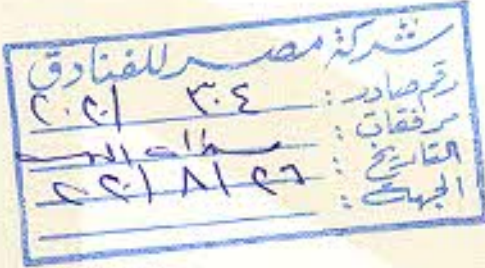 شركة مصر للفنادق
رقم صادر : ٣٠٤ ٢٠٢١
مرفقات :
التاريخ : ٢٦ / ٨ / ٢٠٢١
الجهة :